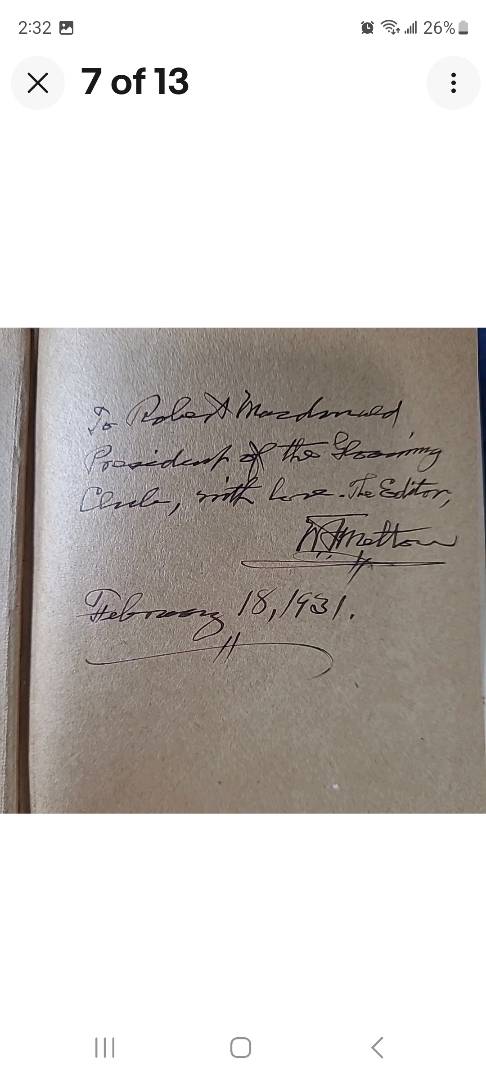 2:32 26%
7 of 13
To Robert Macdonald
President of the
Club, with love. The Editor,
W.F. Melton
February 18, 1931.